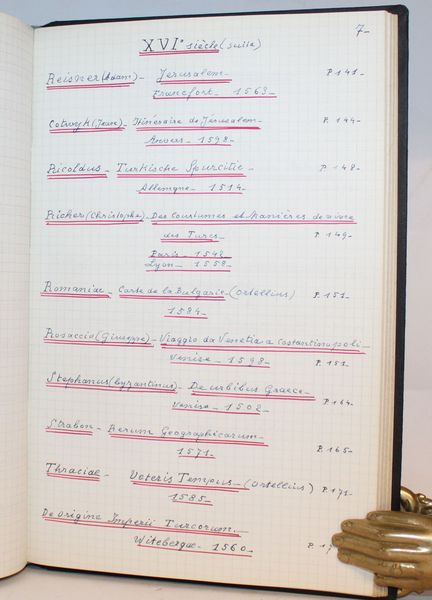 7-
XVIe siècle (suite)
Reisner (Adam)- Jerusalem- P. 141-
Francfort- 1563-
Cotwyk (Jean)- Itinéraire de Jérusalem- P. 144-
Anvers- 1598-
Ricoldus- Turkische Spurcitie- P. 148-
Allemgne- 1514-
Richer (Christophe)- Des Coustumes et Manières de vivre
des Turcs- P. 149-
Paris- 1542-
Lyon- 1558-
Romaniae- Carte de la Bulgarie- (Ortellius) P. 151-
1584-
Rosaccio (Giuseppe)- Viaggio da Venetia a Costantinopoli-
Venise- 1598- P. 151-
Stephanus (byzantinus)- De urbibus Graece-
Venise- 1502- P. 164-
Strabon- Rerum Geographicarum- P. 165-
1571-
Thraciae- Veteris Tempus- (Ortellius) P. 171-
1585-
De Origine Imperii Turcorum-
Witebergue- 1560- P. 17